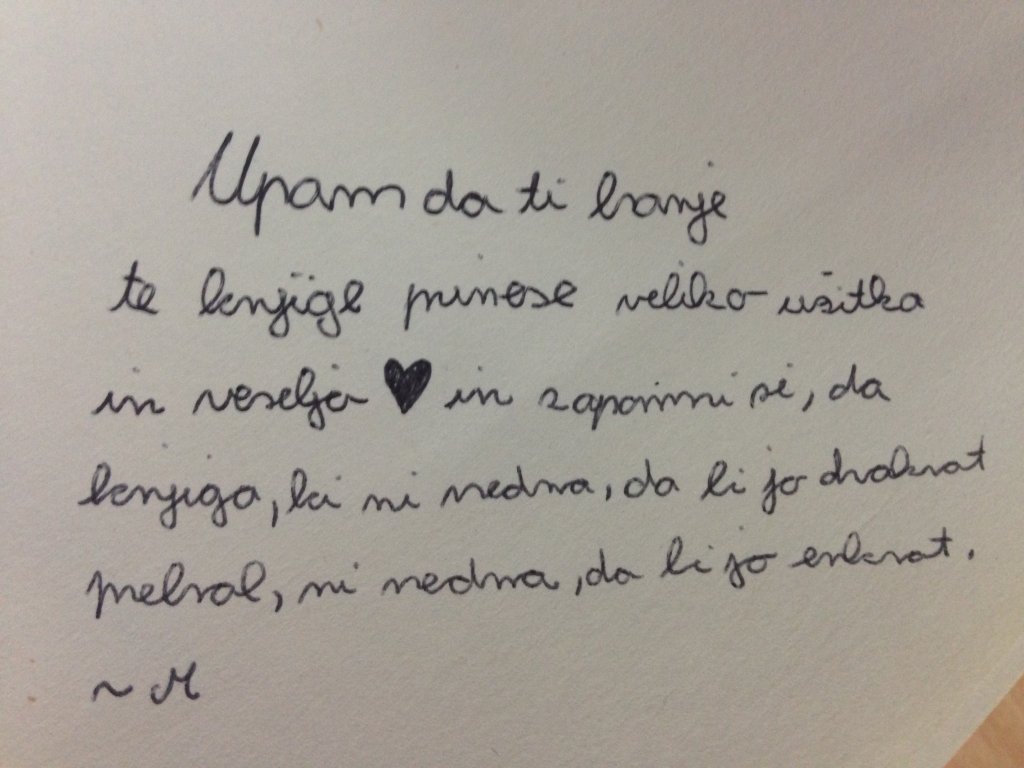 Upam da ti branje
te knjige prinese veliko užitka
in veselja ♥ in zapomni si, da
knjiga, ki ni vredna, da bi jo dvakrat
prebral, ni vredna, da bi jo enkrat.
~ M